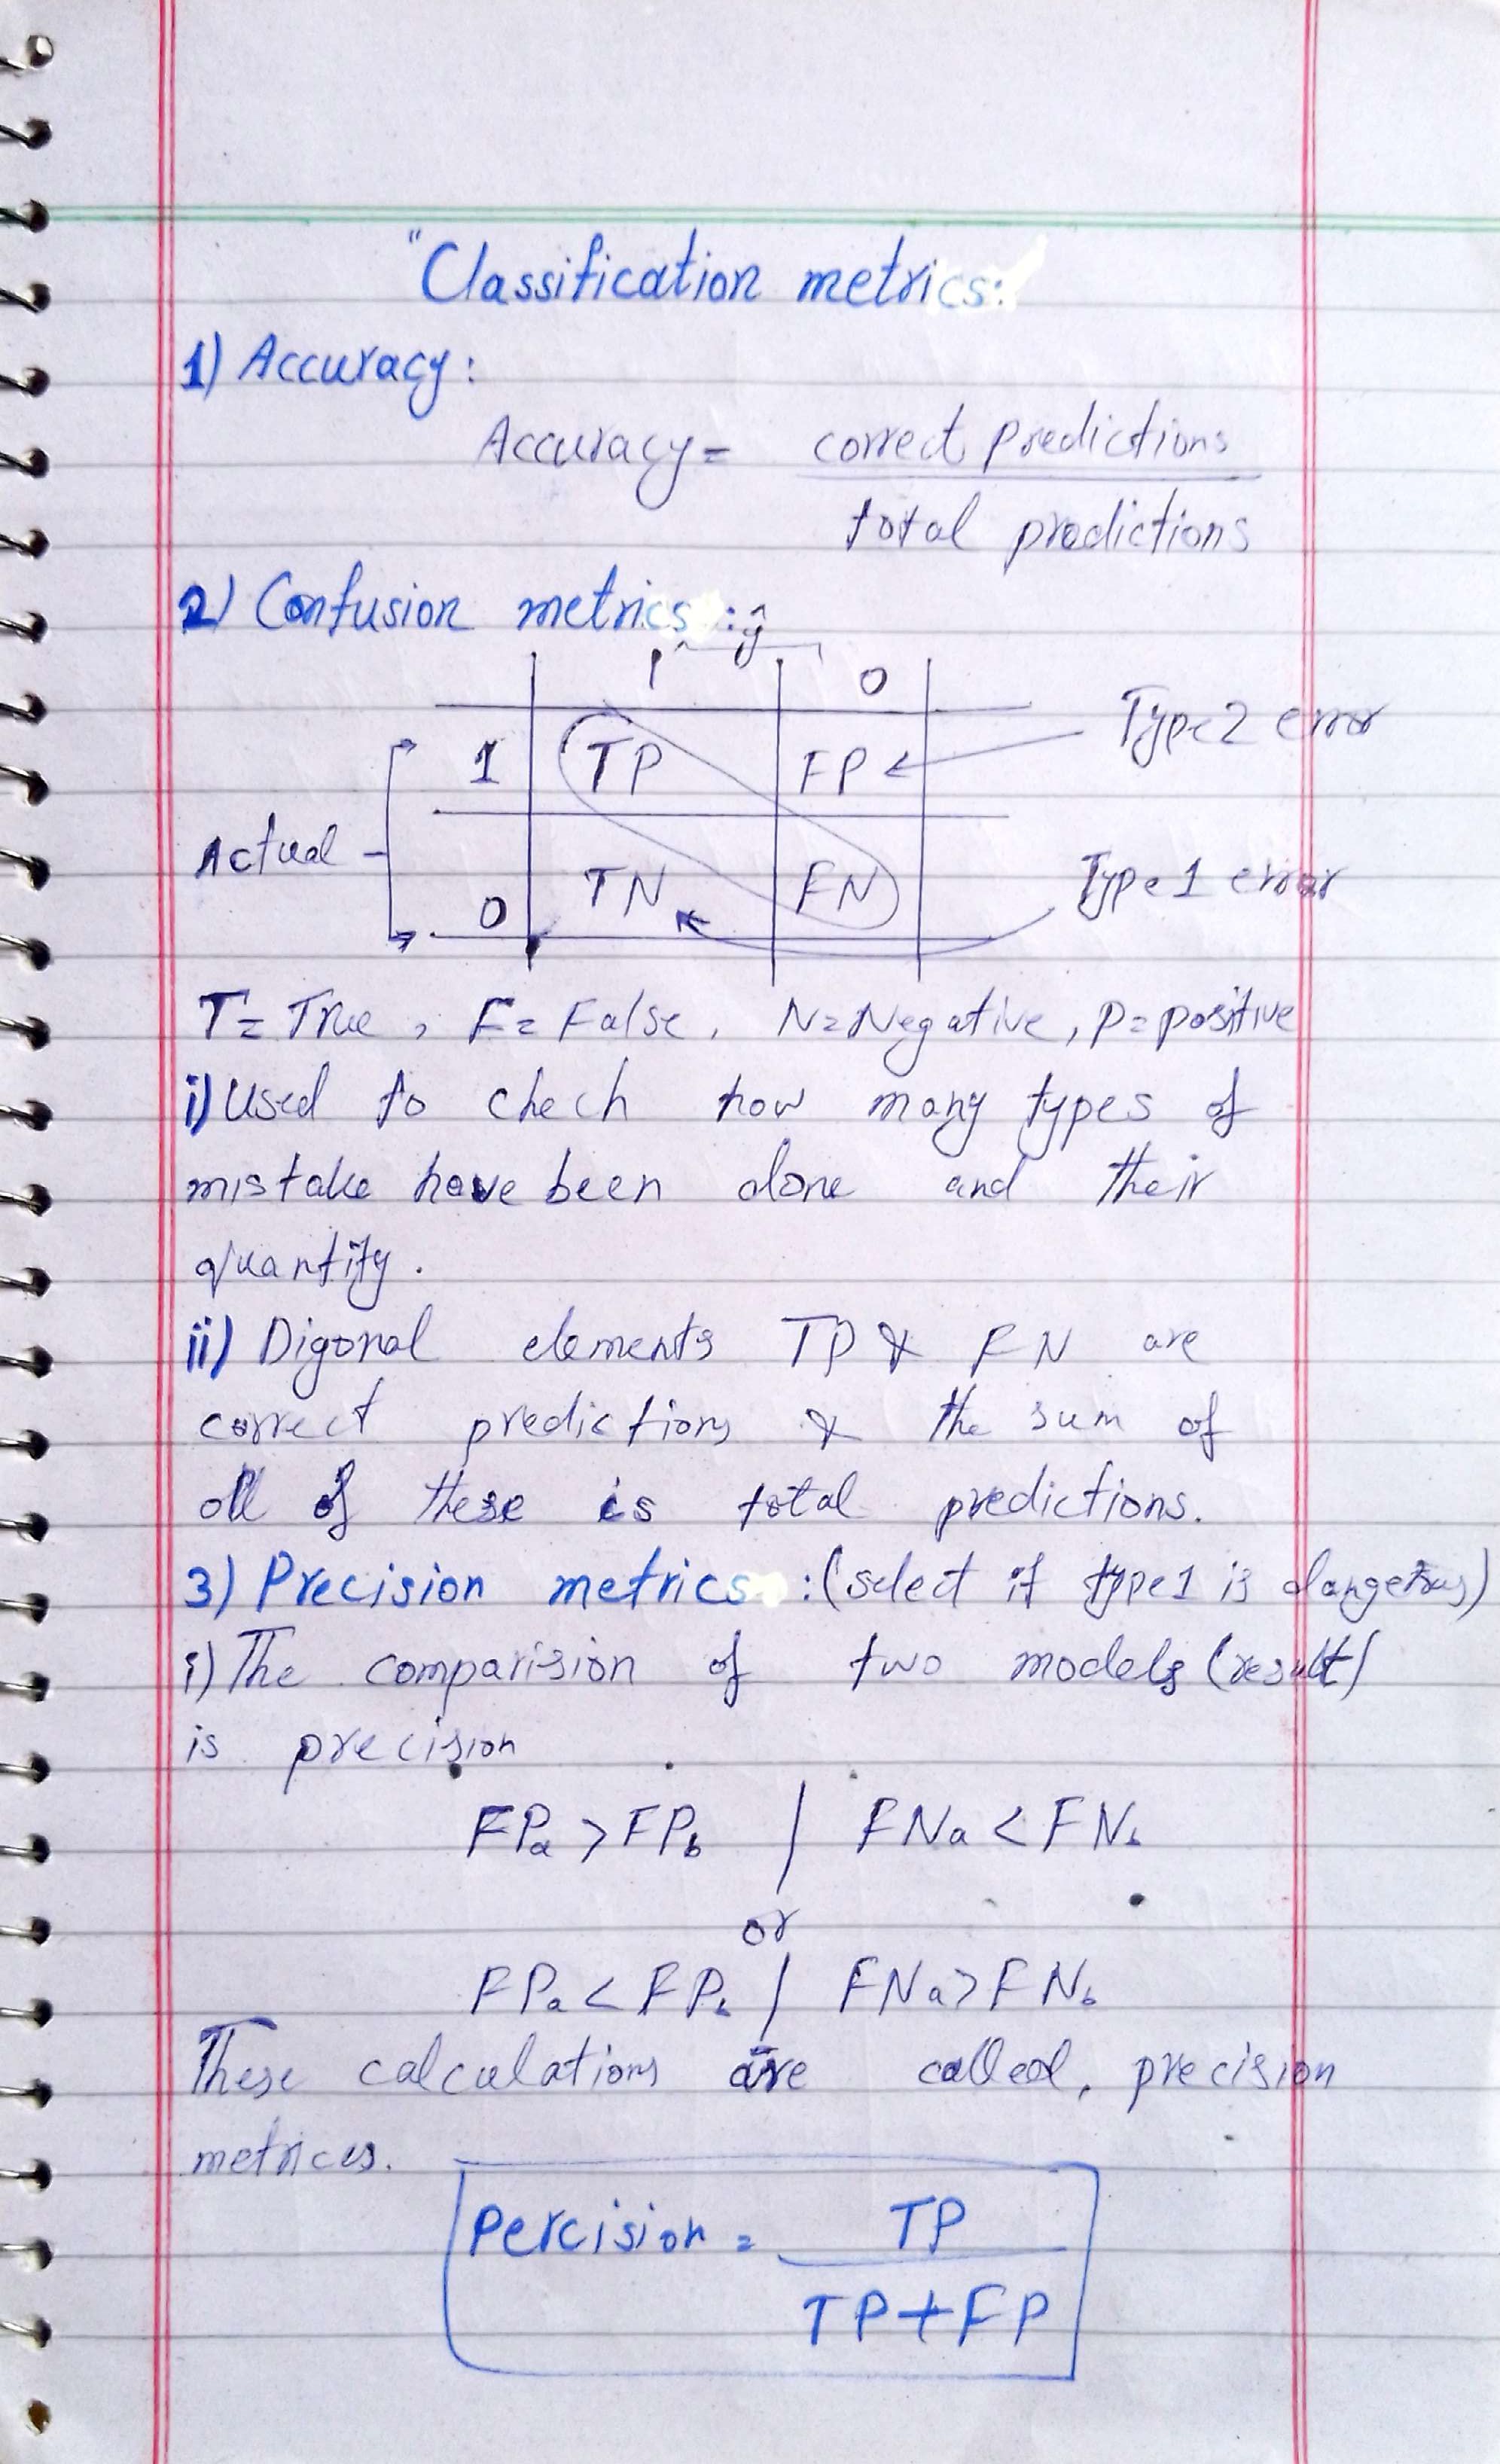 "Classification metrics:
1) Accuracy:
Accuracy = correct predictions
total predictions
2) Confusion metrics : ŷ
1 0
Type 2 error
1 TP FP
Actual
Type 1 error
0 TN FN
T = True , F = False , N = Negative , P = positive
i) Used to chech how many types of
mistake have been done and their
quantity .
ii) Digonal elements TP & FN are
correct predictions & the sum of
all of these is total predictions.
3) Precision metrics : (select if type 1 is dangerous)
i) The comparision of two models (result)
is precision
FPa > FPb / FNa < FNb
or
FPa < FPb / FNa > FNb
These calculations are called, precision
metrices.
Percision = TP
TP + FP